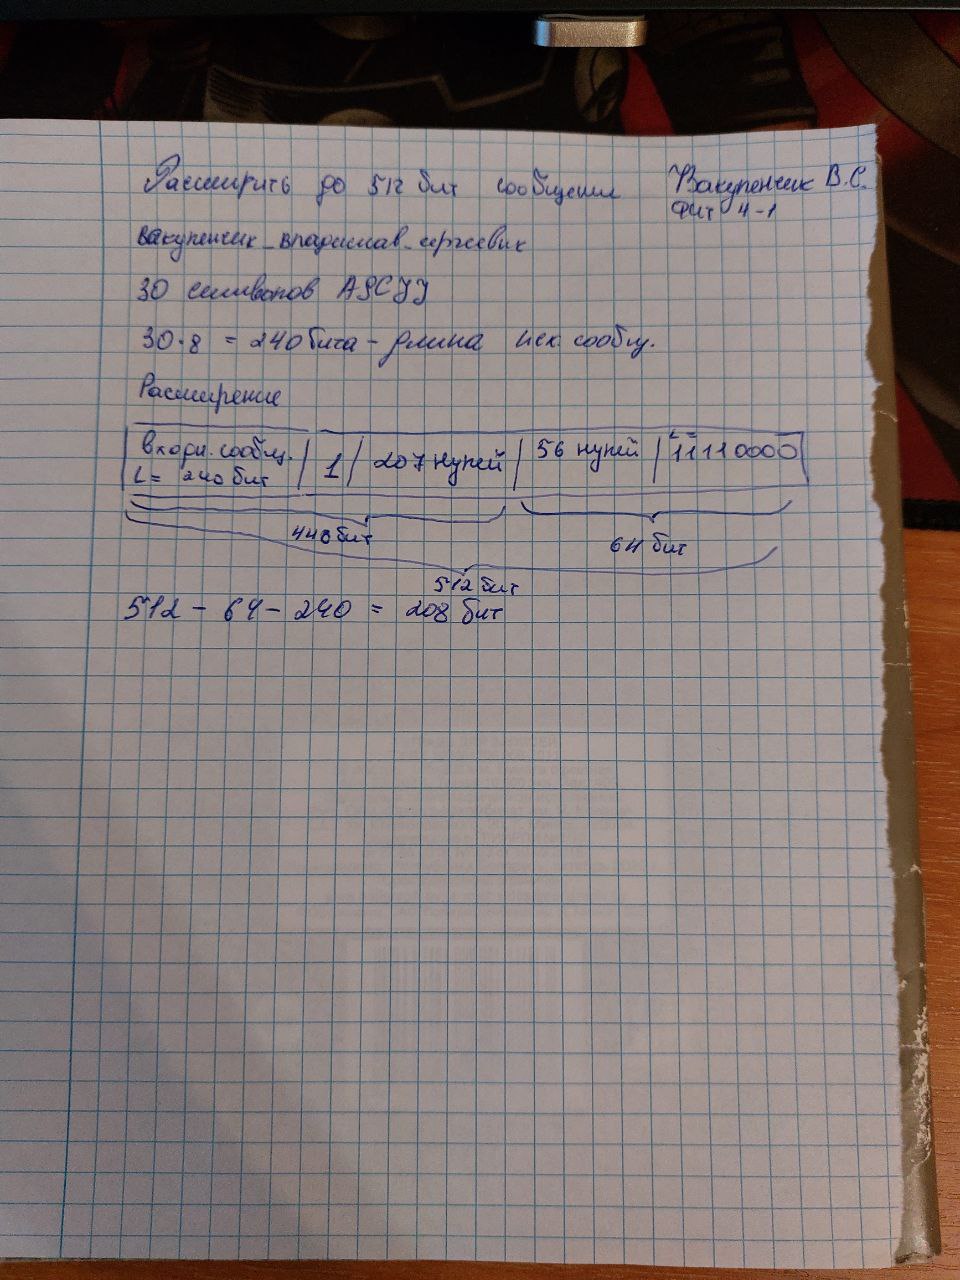 Расширить до 512 бит сообщение
Вакупенчик В.С.
ФИТ 4-1
вакупенчик_владислав_сергеевич
30 символов ASCII
30·8 = 240 бита - длина исх. сообщ.
Расширение
Входн. сообщ. L = 240 бит | 1 | 207 нулей | 56 нулей | L= 11110000
448 бит
64 бит
512 бит
512 - 64 - 240 = 208 бит